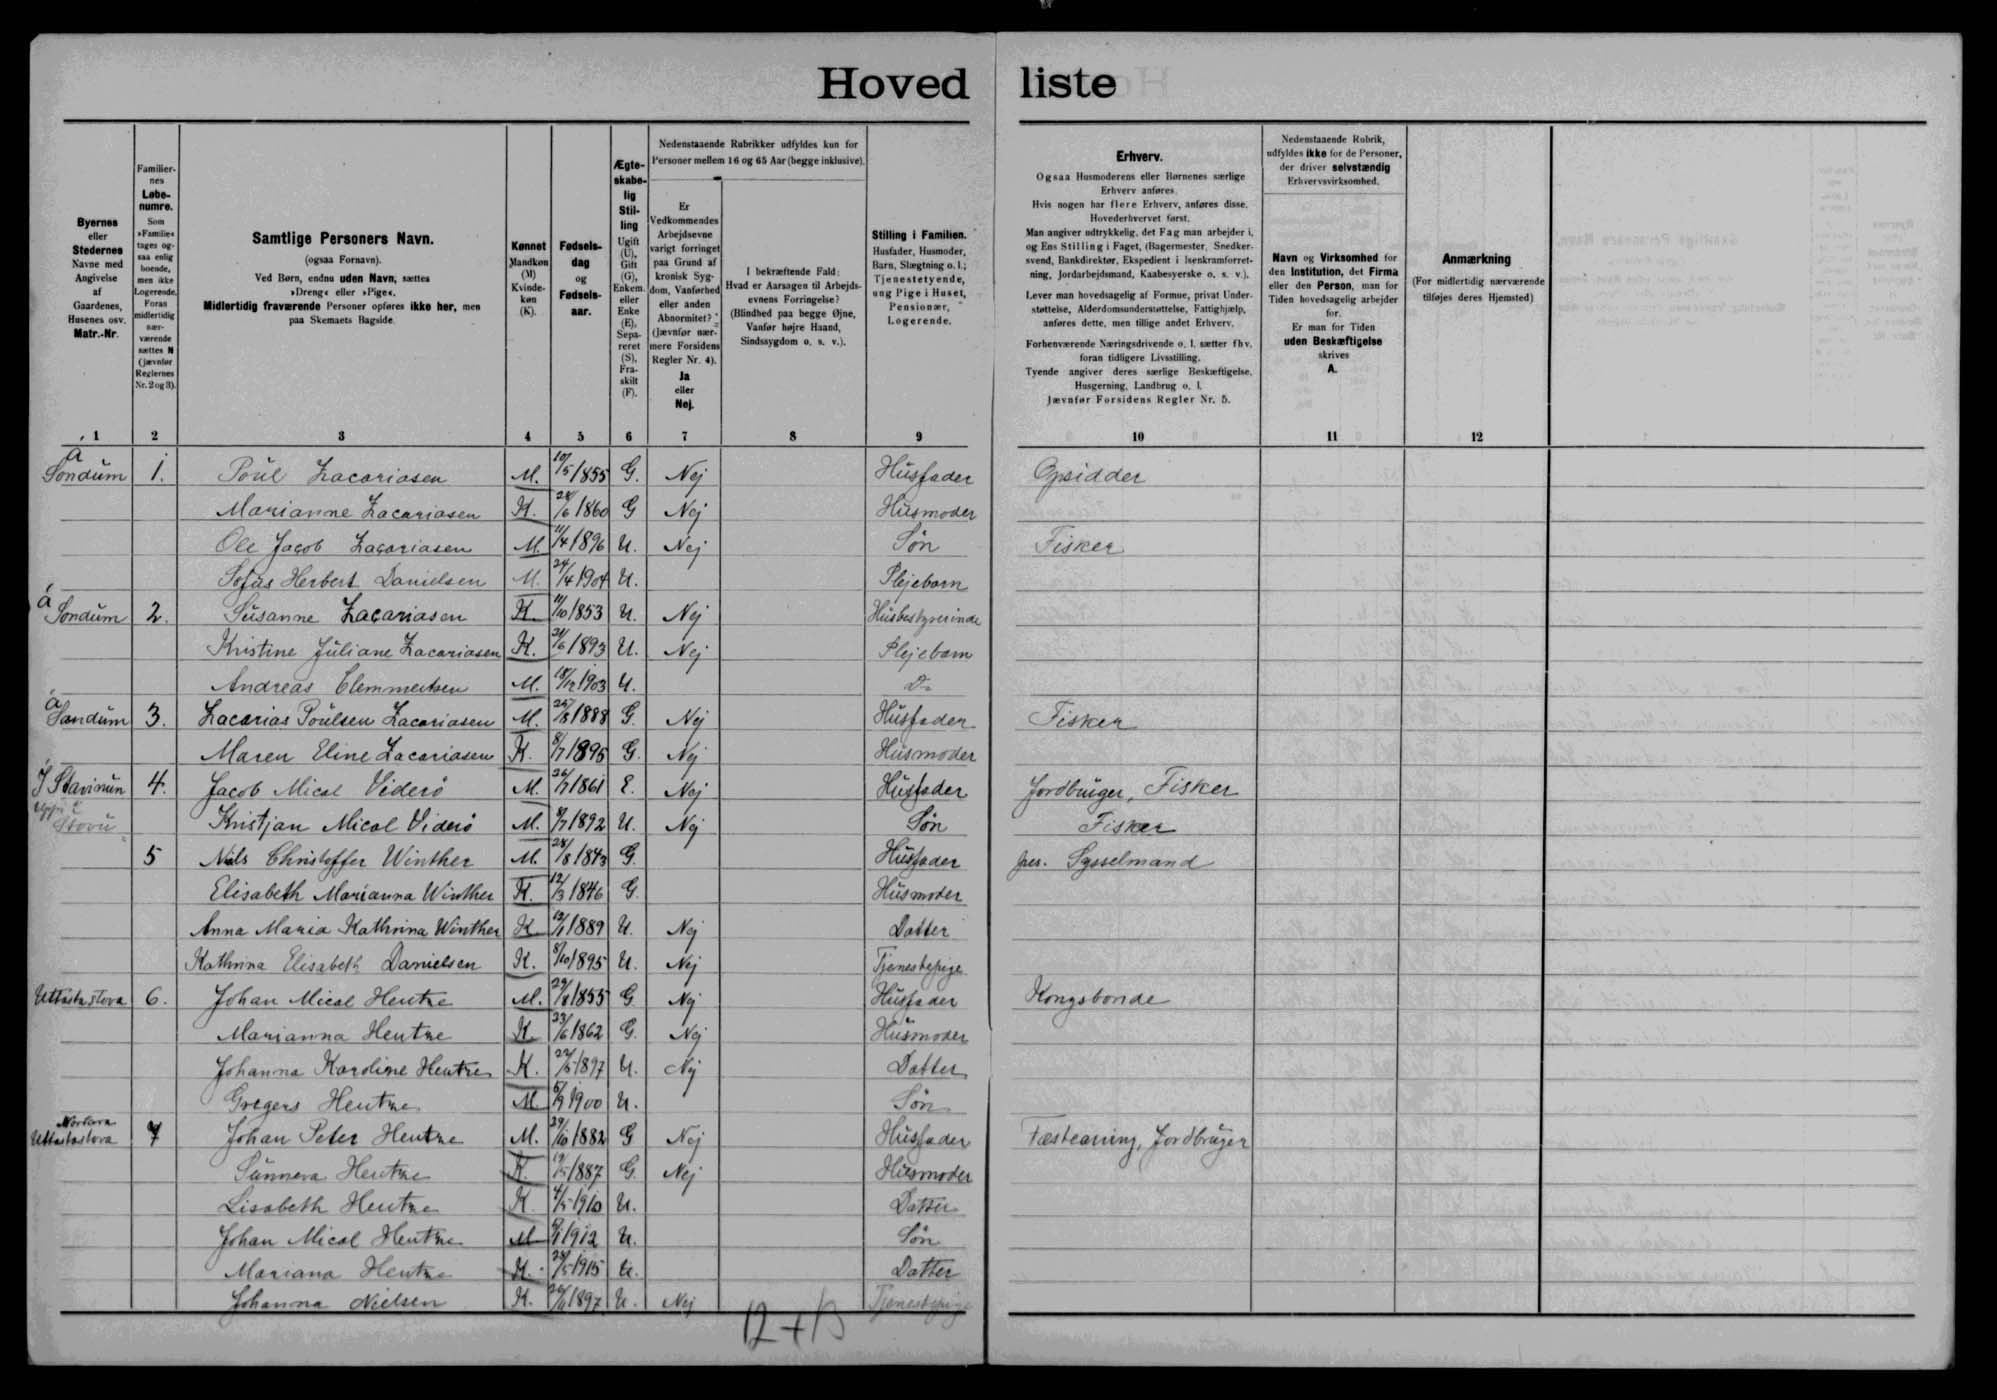 Hoved liste
Byernes eller Stedernes Navne med Angivelse af Gaardenes, Husenes osv. Matr.-Nr.
Familiernes Løbenumre. Som »Familie« tages ogsaa enlig boende, men ikke Logerende. Foran midlertidig nærværende sættes N (jævnfør Reglernes Nr. 2 og 3).
Samtlige Personers Navn.
(ogsaa Fornavn).
Ved Børn, endnu uden Navn, sættes
»Dreng« eller »Pige«.
Midlertidig fraværende Personer opføres ikke her, men
paa Skemaets Bagside.
Kønnet Mandkøn (M) Kvindekøn (K).
Fødselsdag og Fødselsaar.
Ægteskabelig Stilling Ugift (U), Gift (G), Enkem. eller Enke (E), Separeret (S), Fraskilt (F).
Nedenstaaende Rubrikker udfyldes kun for
Personer mellem 16 og 65 Aar (begge inklusive).
Er Vedkommendes Arbejdsevne varigt forringet paa Grund af kronisk Sygdom, Vanførhed eller anden Abnormitet? (Jævnfør nærmere Forsidens Regler Nr. 4). Ja eller Nej.
I bekræftende Fald: Hvad er Aarsagen til Arbejdsevnens Forringelse? (Blindhed paa begge Øjne, Vanfør højre Haand, Sindssygdom o. s. v.).
Stilling i Familien. Husfader, Husmoder, Barn, Slægtning o. l.; Tjenestetyende, ung Pige i Huset, Pensionær, Logerende.
Erhverv.
Ogsaa Husmoderens eller Børnenes særlige
Erhverv anføres.
Hvis nogen har flere Erhverv, anføres disse.
Hovederhvervet først.
Man angiver udtrykkelig, det Fag man arbejder i,
og Ens Stilling i Faget, (Bagermester, Snedkersvend, Bankdirektør, Ekspedient i Isenkramforretning, Jordarbejdsmand, Kaabesyerske o. s. v.).
Lever man hovedsagelig af Formue, privat Understøttelse, Alderdomsunderstøttelse, Fattighjælp,
anføres dette, men tillige andet Erhverv.
Forhenværende Næringsdrivende o. l. sætter fhv.
foran tidligere Livsstilling.
Tyende angiver deres særlige Beskæftigelse,
Husgerning, Landbrug o. l.
Jævnfør Forsidens Regler Nr. 5.
Nedenstaaende Rubrik,
udfyldes ikke for de Personer,
der driver selvstændig
Erhvervsvirksomhed.
Navn og Virksomhed for
den Institution, det Firma
eller den Person, man for
Tiden hovedsagelig arbejder
for.
Er man for Tiden
uden Beskæftigelse
skrives
A.
Anmærkning
(For midlertidig nærværende
tilføjes deres Hjemsted)
1 2 3 4 5 6 7 8 9 10 11 12
á Sondum 1. Poul Zacariasen M. 10/5 1855 G. Nej Husfader Opsidder
Marianne Zacariasen K. 28/6 1860 G Nej Husmoder
Ole Jacob Zacariasen M. 11/4 1896 U. Nej Søn Fisker
Sofus Herbert Danielsen M. 24/4 1904 U. Plejebarn
á Sondum 2. Susanne Zacariasen K. 11/10 1853 U. Nej Husbestyrerinde
Kristine Juliane Zacariasen K. 21/6 1893 U. Nej Plejebarn
Andreas Clemmentsen M. 18/12 1903 U. Do
á Sandum 3. Zacarias Poulsen Zacariasen M. 26/8 1888 G. Nej Husfader Fisker
Maren Eline Zacariasen K. 8/7 1895 G. Nej Husmoder
Í Stavinun 4. Jacob Mical Viderö M. 26/7 1861 E. Nej Husfader Jordbruger, Fisker
Uppi í Stovu Kristjan Mical Viderö M. 8/7 1892 U. Nej Søn Fisker
5 Niels Christoffer Winther M. 28/8 1843 G. Husfader fhv. Sysselmand
Elisabeth Marianna Winther K. 12/3 1846 G. Husmoder
Anna Maria Kathrina Winther K 13/1 1889 U. Nej Datter
Kathrina Elisabeth Danielsen K. 8/10 1895 U. Nej Tjenestepige
Uttastastova 6. Johan Mical Hentze M. 29/8 1855 G Nej Husfader Kongsbonde
Marianna Hentze K 23/6 1862 G. Nej Husmoder
Johanna Karoline Hentze K. 22/5 1897 U. Nej Datter
Gregers Hentze M 5/9 1900 U. Søn
Uttastastova 7 Johan Peter Hentze M. 29/10 1882 G Nej Husfader Fæstearving, Jordbruger
Sunneva Hentze K. 19/5 1887 G. Nej Husmoder
Lisabeth Hentze K. 4/5 1910 U. Datter
Johan Mical Hentze M 1912 U. Søn
Mariana Hentze K. 28/5 1915 U. Datter
Johanna Nielsen K. 1897 U. Nej Tjenestepige
12 + 13